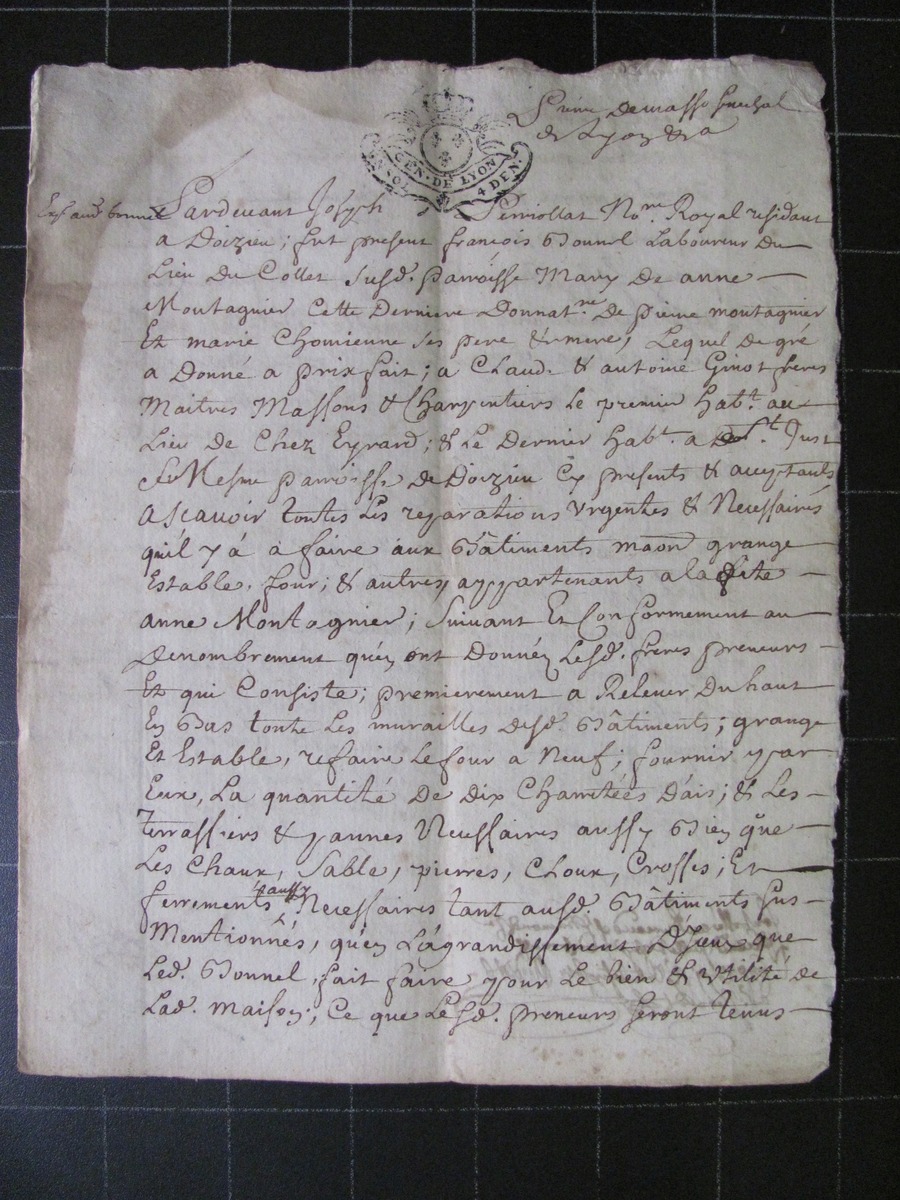 de Lyon
SOL. GEN. DE LYON 4 DEN.
Pardevant Joseph Perriollat No.re Royal residant
a Doizieu; fut present francois Bonnel Laboureur du
Lieu du Collet susd. parroisse Mary de anne
Montagnier cette derniere Donnat.re de pierre montagnier
Et marie Chomienne ses pere & mere, Lequel de gré
a Donné a prix fait; a Claud. & antoine Ginot freres
Maitres Massons & Charpentiers le premier hab.t au
Lieu de Chez Eyrard; & Le Dernier hab.t a S.t Just
parroisse de Doizieu Cy presents & acceptants
Ascavoir toutes Les reparations Urgentes & Necessaires
qu'il y à à faire aux Bâtiments maon grange
Estable, four; & autres appartenants a la dite
anne Montagnier; Suivant Et Conformement au
Denombrement qu'en ont Donnéz Lesd. freres preneurs
Et qui Consiste; premierement a Relever Du haut
En Bas toute Les murailles desd. Bâtiments; grange
Et Estable, refaire Le four à Neuf; fournir par
Eux, La quantité De dix Charrêtées D'ais; & Les
terrassiers & pannes Necessaires aussy Bien que
Les Chaux, Sable, pierres, Cloux, Crosses; Et
ferrements aussy Necessaires tant ausd. Bâtiments sus
Mentionnés, qu'en L'agrandissement D'yceux que
Led. Bonnel fait faire pour Le bien & Utilité de
Lad. maison; Ce que Lesd. preneurs seront tenus